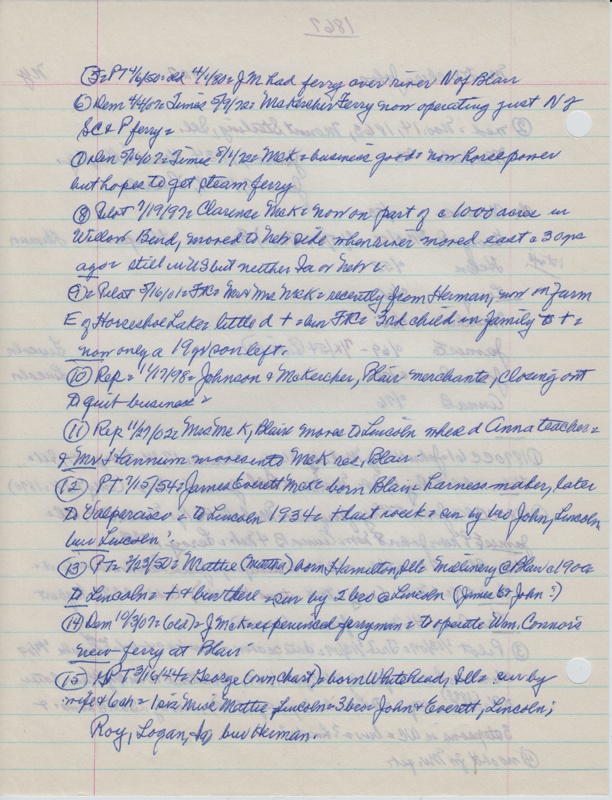 ⑤ = PT 4/6/50 = ded 4/1/50 = JM had ferry over river N of Blair
⑥ Dem = Times 5/9/72 = McKercher Ferry now operating just N of
SC & P ferry =
= Times 5/4/72 = McK = business good = now horsepower
but hopes to get steam ferry
⑧ Pilot 7/19/97 = Clarence McK = now on part of c 1000 acres in
Willow Bend, moved to Nebr side when river moved east c 30 yrs
ago = still in US but neither Ia or Nebr
⑨ = Pilot 5/16/01 = FK = Mr & Mrs McK = recently from Herman, now on farm
E of Horseshoe Lake = little d + = bur FK = 3rd child in family to + =
now only a 19 yr son left.
⑩ Rep = 11/17/98 = Johnson & McKercher, Blair merchants, closing out
to quit business =
⑪ Rep 11/27/02 = Mrs McK, Blair moves to Lincoln where d Anna teacher =
& Mr Hannum moves into McK res, Blair =
⑫ PT 7/15/54 = James Everett McK = born Blair = harness maker, later
to Valparaiso = to Lincoln 1934 = + last week = sur by bro John, Lincoln
bur Lincoln.
⑬ PT = 3/23/50 = Mattie (Martha) born Hamilton, Ills = millinery @ Blair c 1900
to Lincoln = + & bur there = sur by 2 bro @ Lincoln (James & John?)
⑭ Dem 10/3/07 = (ed) = J McK = experienced ferryman = to operate Wm. Connor's
new ferry at Blair
⑮ PT 3/16/44 = George (own chart) = born Whitehead, Ills = sur by
wife & 6 ch = 1 sis Miss Mattie, Lincoln = 3 bro John & Everett, Lincoln;
Roy, Logan, Ia bur Herman.